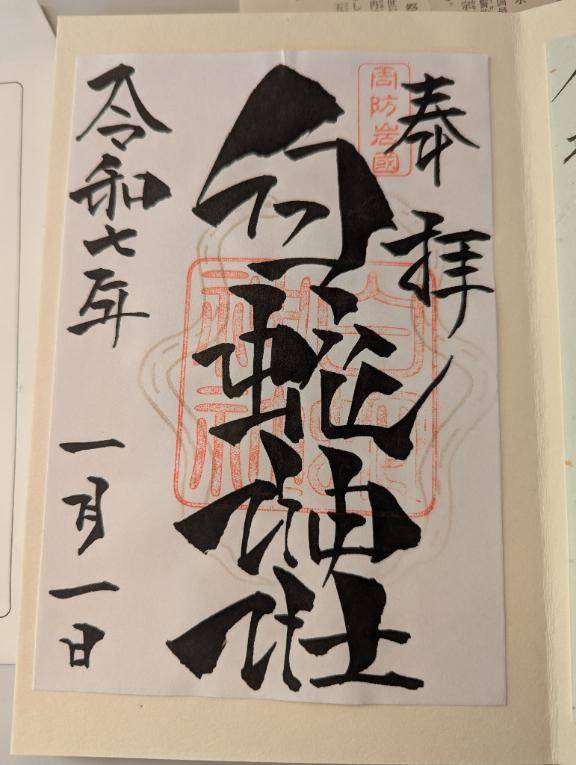 奉拝
周防岩國
白蛇神社
令和七年
一月一日